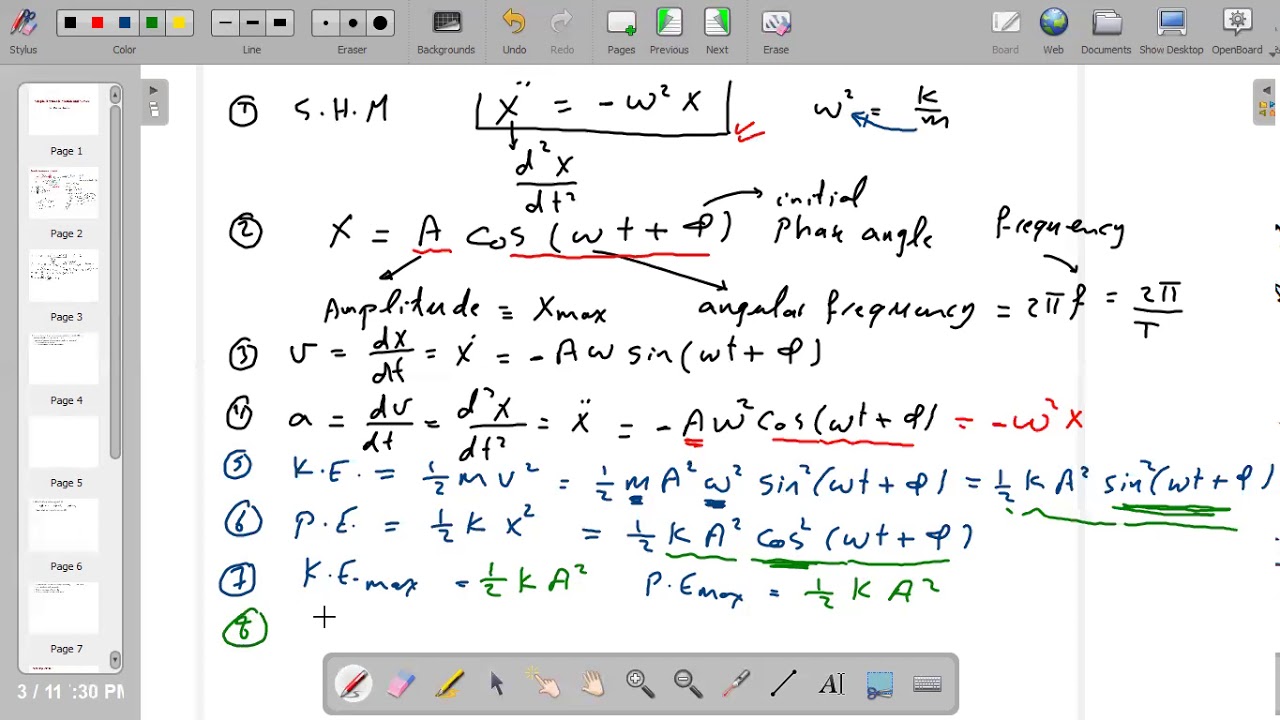 Stylus Color Line Eraser Backgrounds Undo Redo Pages Previous Next Erase Board Web Documents Show Desktop OpenBoard
Page 1
Page 2
Page 3
Page 4
Page 5
Page 6
Page 7
3 / 11 1:30 PM
① S.H.M ẍ = - ω² x ω² = k/m
d²x/dt²
② x = A cos(ωt + φ) initial Phase angle frequency
Amplitude ≡ Xmax angular frequency = 2πf = 2π/T
③ v = dx/dt = ẋ = - Aω sin(ωt + φ)
④ a = dv/dt = d²x/dt² = ẍ = - Aω² cos(ωt + φ) = - ω² x
⑤ K.E. = ½ m v² = ½ m A² ω² sin²(ωt + φ) = ½ K A² sin²(ωt + φ)
⑥ P.E. = ½ K x² = ½ K A² cos²(ωt + φ)
⑦ K.E.max = ½ K A² P.Emax = ½ K A²
⑧